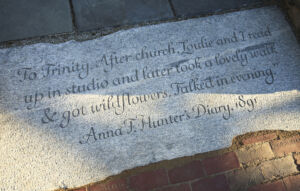 "To Trinity. After church, Louie and I read
up in studio and later took a lovely walk
& got wildflowers. Talked in evening."
Anna F. Hunter's Diary, 1891